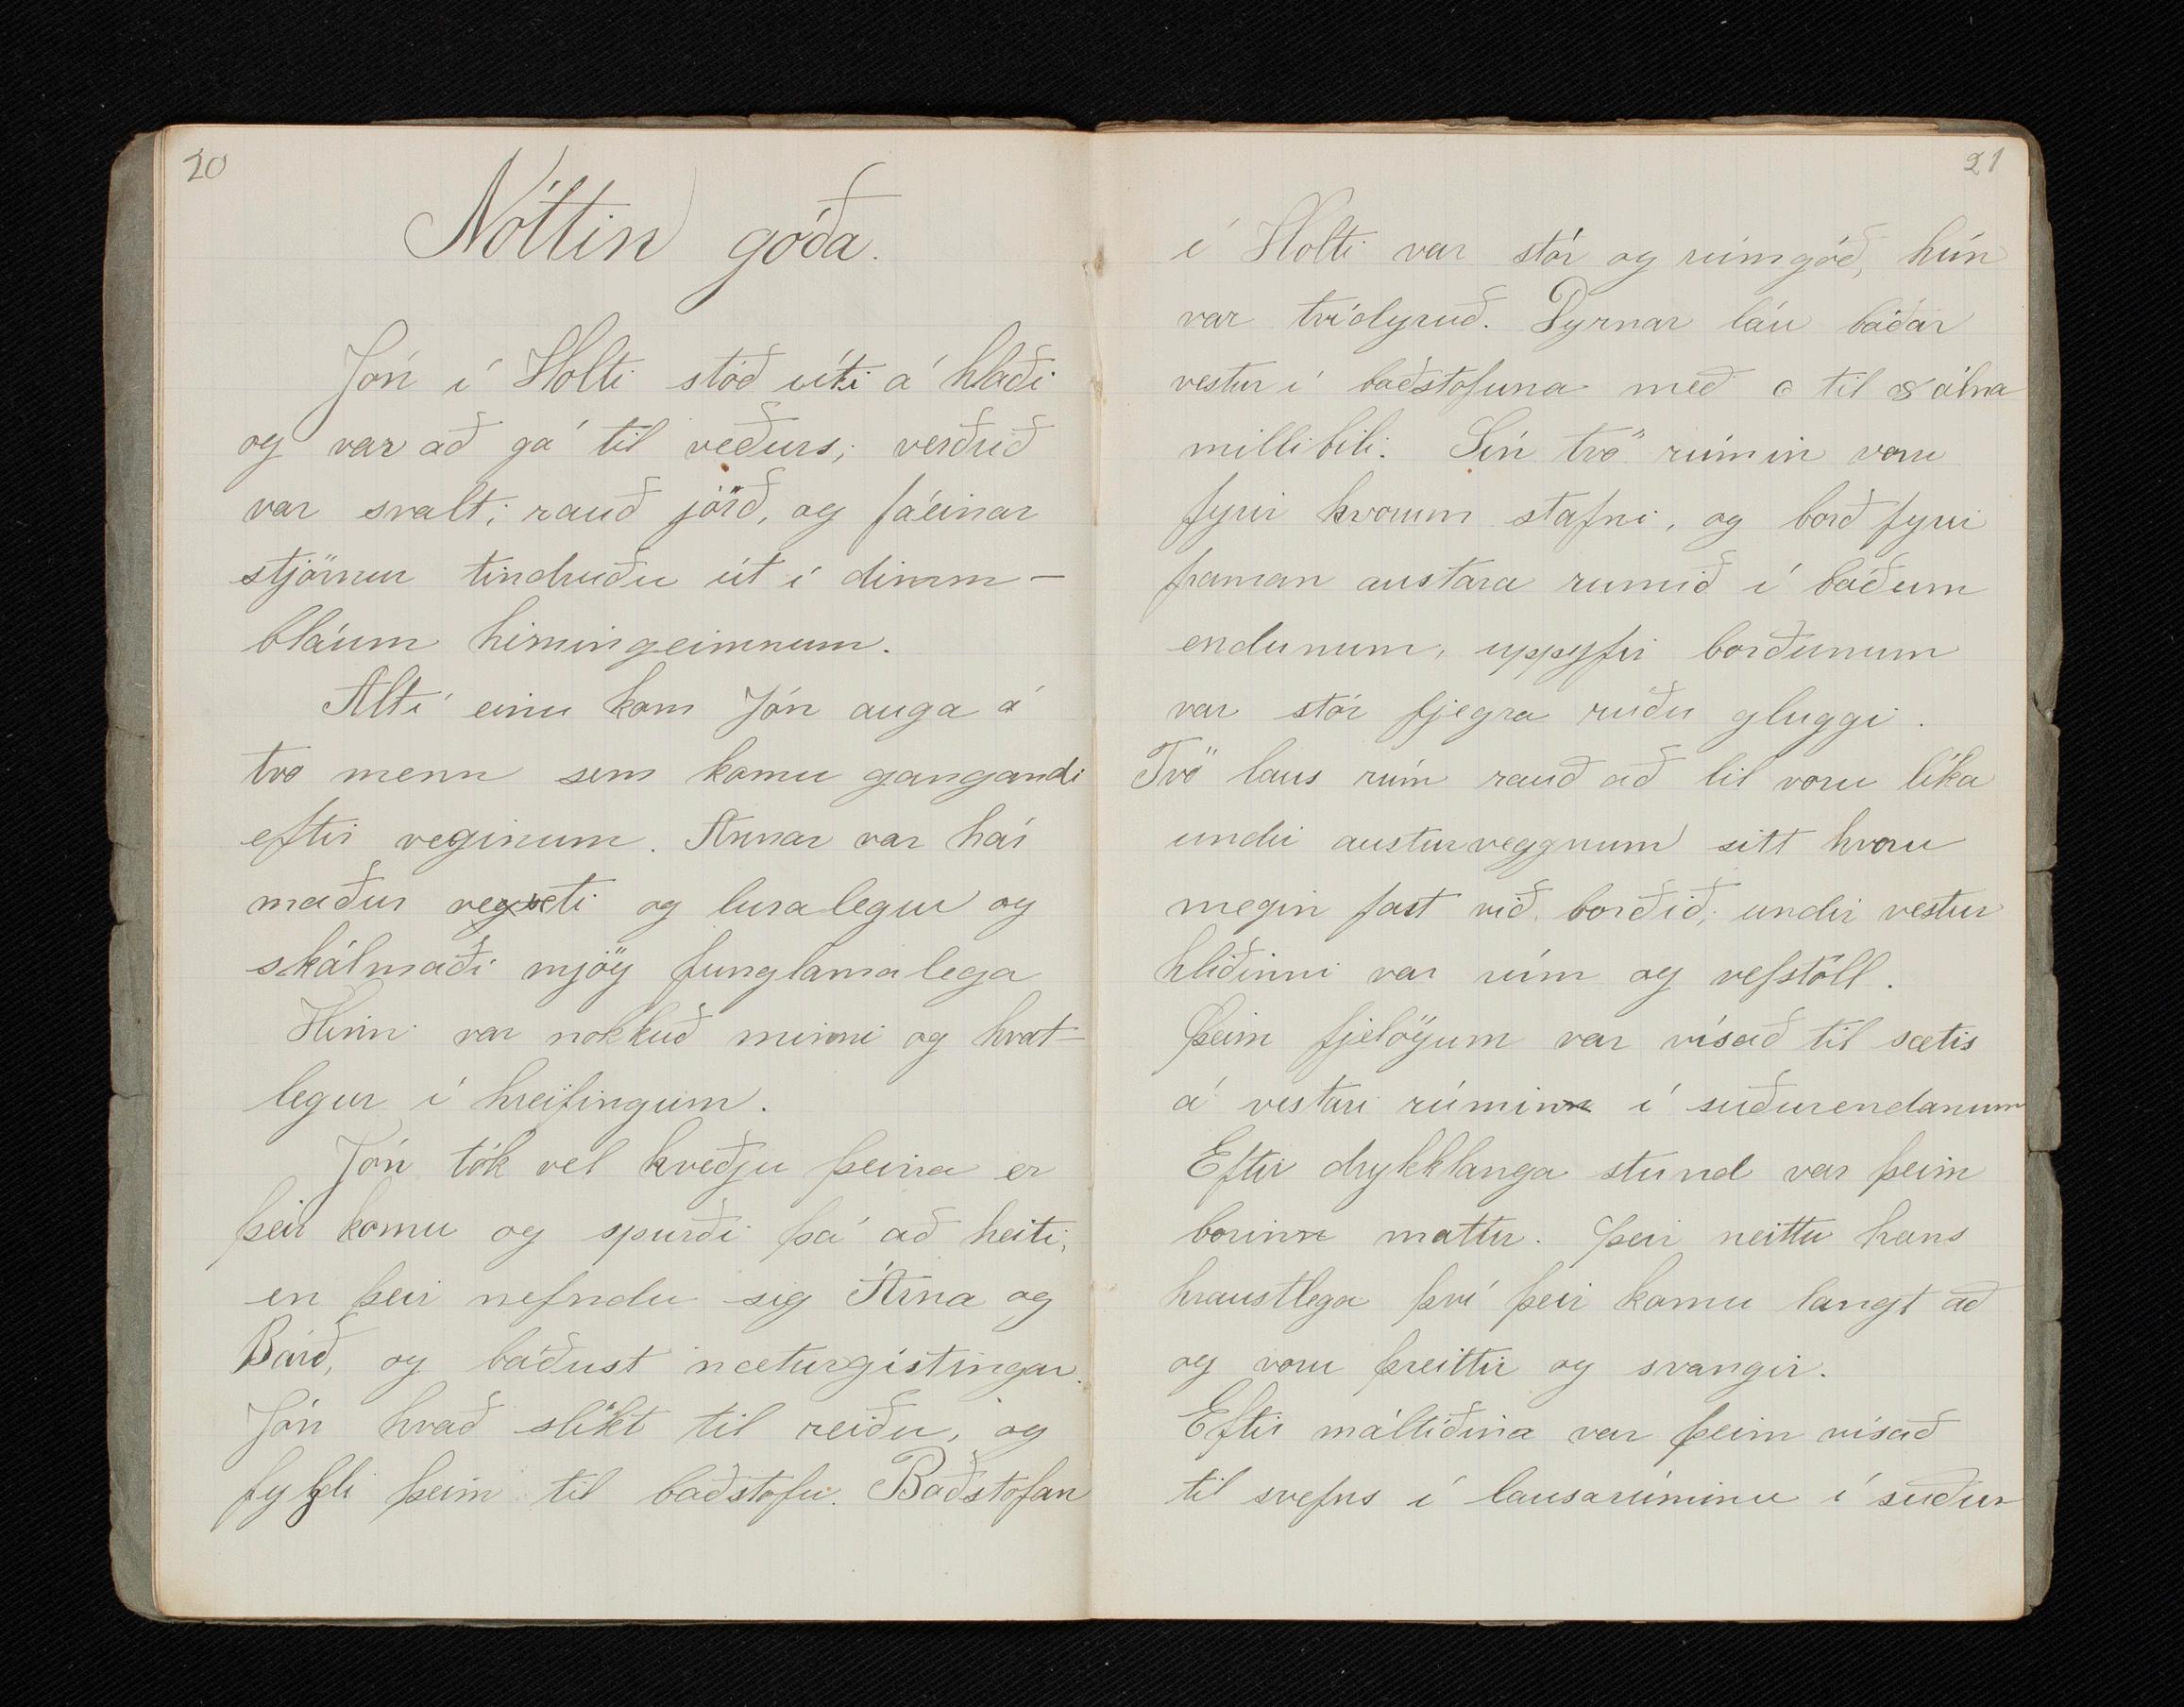 20
Nóttin góða.
Jón í Holti stóð úti á hlaði
og var að gá til veðurs; veðrið
var svalt; rauð jörð, og fáeinar
stjörnur tindruðu út í dimm-
bláum himingeimnum.
Alt í einu kom Jón auga á
tvo menn sem komu gangandi
eftir veginum. Annar var hár
maður og luralegur og
skálmaði mjög þunglamalega
Hinn var nokkuð minni og hvat-
legur í hreifingum.
Jón tók vel kveðju þeirra er
þeir komu og spurði þá að heiti,
en þeir nefndu sig Árna og
Bárð, og báðust næturgistingar.
Jón kvað slíkt til reiðu, og
fylgdi þeim til baðstofu. Baðstofan
21
í Holti var stór og rúmgóð, hún
var tvídyruð. Dyrnar láu báðar
vestur í baðstofuna með 6 til 8 álna
millibili. Sín tvö rúmin voru
fyrir hvorum stafni, og borð fyrir
framan austara rumið í báðum
endunum, uppyfir borðunum
var stór fjegra rúðu gluggi.
Tvö laus rúm rauð að lit voru líka
undir austurveggnum sitt hvoru
megin fast við borðið, undir vestur
hliðinni var rúm og vefstóll.
Þeim fjelögum var vísað til sætis
á vestari rúmin í suðurendanum
Eftir drykklanga stund var þeim
borinn mattur. Þeir neittu hans
hraustlega því þeir komu langt að
og voru þreittir og svangir.
Eftir máltíðina var þeim vísað
til svefns í lausarúminu í suður